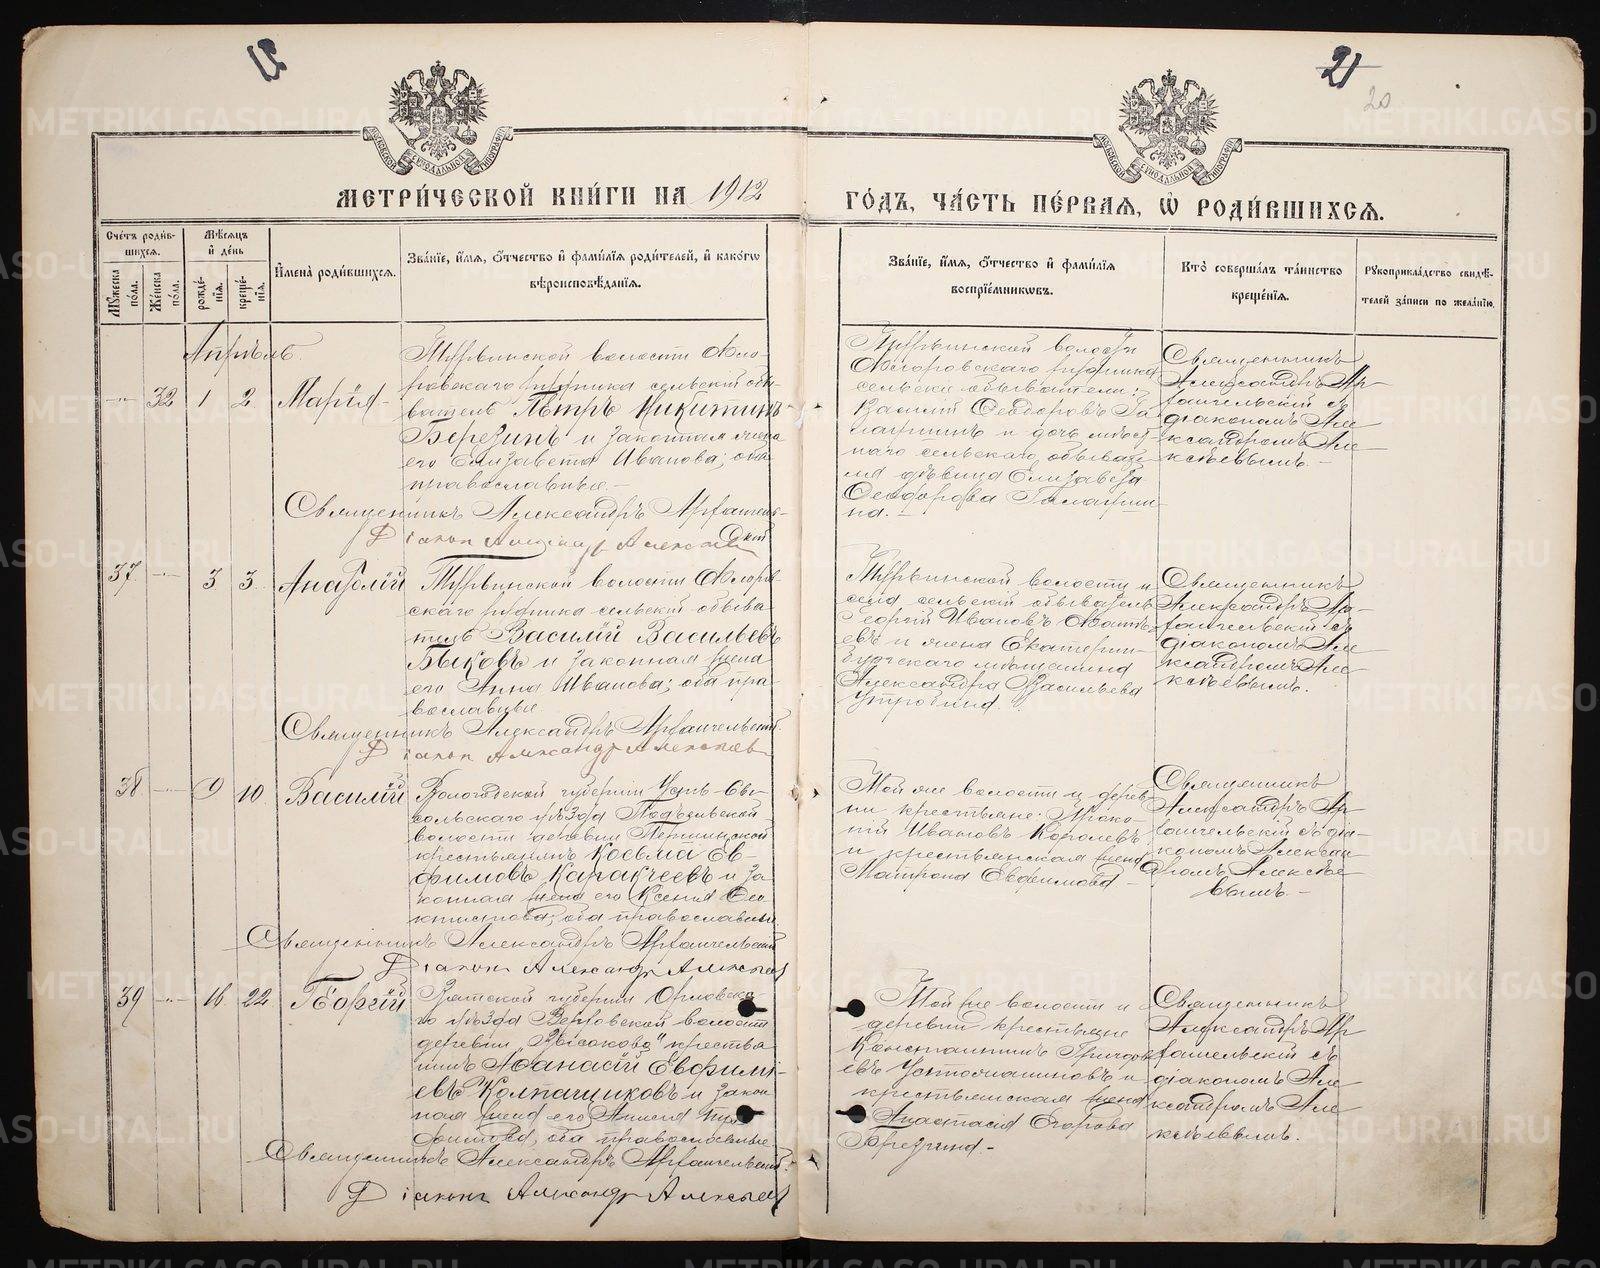 21
20
МЕТРИ́ЧЕСКОЙ КНИ́ГИ НА 1912 ГО́ДЪ, ЧА́СТЬ ПЕ́РВАЯ, Ѡ РОДИ́ВШИХСЯ.
Сче́тъ роди́в-
шихся.
Му́жеска по́ла.
Же́нска по́ла.
Мѣ́сяцъ
и де́нь
рожде́-
нія.
креще́-
нія.
Имена̀ роди́вшихся.
Зва́нїе, и́мя, ѻ́тчество и҆ фами́лїя роди́телей, и҆ како́гѡ
вѣроисповѣ́данїя.
Зва́нїе, и́мя, ѻ́тчество и҆ фами́лїя
воспрїе́мникѡвъ.
Кто̀ соверша́лъ та́инство
креще́нїя.
Рукоприкла́дство свидѣ́-
телей за́писи по жела́нію.
Апрѣль.
32 1 2 Марія
сельскій обы-
ватель Петръ Никитинъ
Березинъ и законная жена
его Елизавета Иванова; оба
православные.
Священникъ Александръ Архангель-
скій
Діаконъ Александръ Алексѣевъ
волости
сельскіе обыватели:
Василій Ѳеодоровъ Га-
и дочь мѣст-
наго сельскаго обывате-
ля дѣвица Елизавета
Ѳеодорова
на.
Священникъ
Александръ Ар-
хангельскій съ
діакономъ Але-
ксандромъ Але-
ксѣевымъ.
37 3 3 Анатолій
волости
скаго сельскій обыва-
тель Василій Васильевъ
Быковъ и законная жена
его Анна Иванова; оба пра-
вославные.
Священникъ Александръ Архангельскій
Діаконъ Александръ Алексѣевъ
волости и
села сельскій обыватель
Георгій Ивановъ
евъ и жена Екатерин-
бургскаго мѣщанина
Александра Васильева
Утробина.
Священникъ
Александръ Ар-
хангельскій съ
діакономъ Але-
ксандромъ Але-
ксѣевымъ.
38 9 10 Василій
Вологодской губерніи Усть-Сы-
сольскаго уѣзда Подъельской
волости деревни
крестьянинъ Косьма Ев-
фимовъ Каракчеевъ и за-
конная жена его Ксенія Ѳео-
ктистова; оба православные
Священникъ Александръ Архангельскій
Діаконъ Александръ Алексѣевъ
Той же волости и дерев-
ни крестьяне: Проко-
пій Ивановъ Королевъ
и крестьянская жена
Матрона Евфимова
Священникъ
Александръ Ар-
хангельскій съ діа-
кономъ Алексан-
дромъ Алексѣе-
вымъ.
39 16 22 Георгій
Вятской губерніи Орловска-
го уѣзда Верховской волости
деревни „Высоково" крестья-
нинъ Аѳанасій Евфимі-
евъ Колпащиковъ и закон-
ная жена его
оба православные.
Священникъ Александръ Архангельскій.
Діаконъ Александръ Алексѣевъ
Той же волости и
деревни крестьяне
Константинъ Григорь-
евъ Устюжаниновъ и
крестьянская жена
Анастасія Егорова
Березина
Священникъ
Александръ Ар-
хангельскій съ
діакономъ Але-
ксандромъ Але-
ксѣевымъ.
METRIKI.GASO-URAL.RU